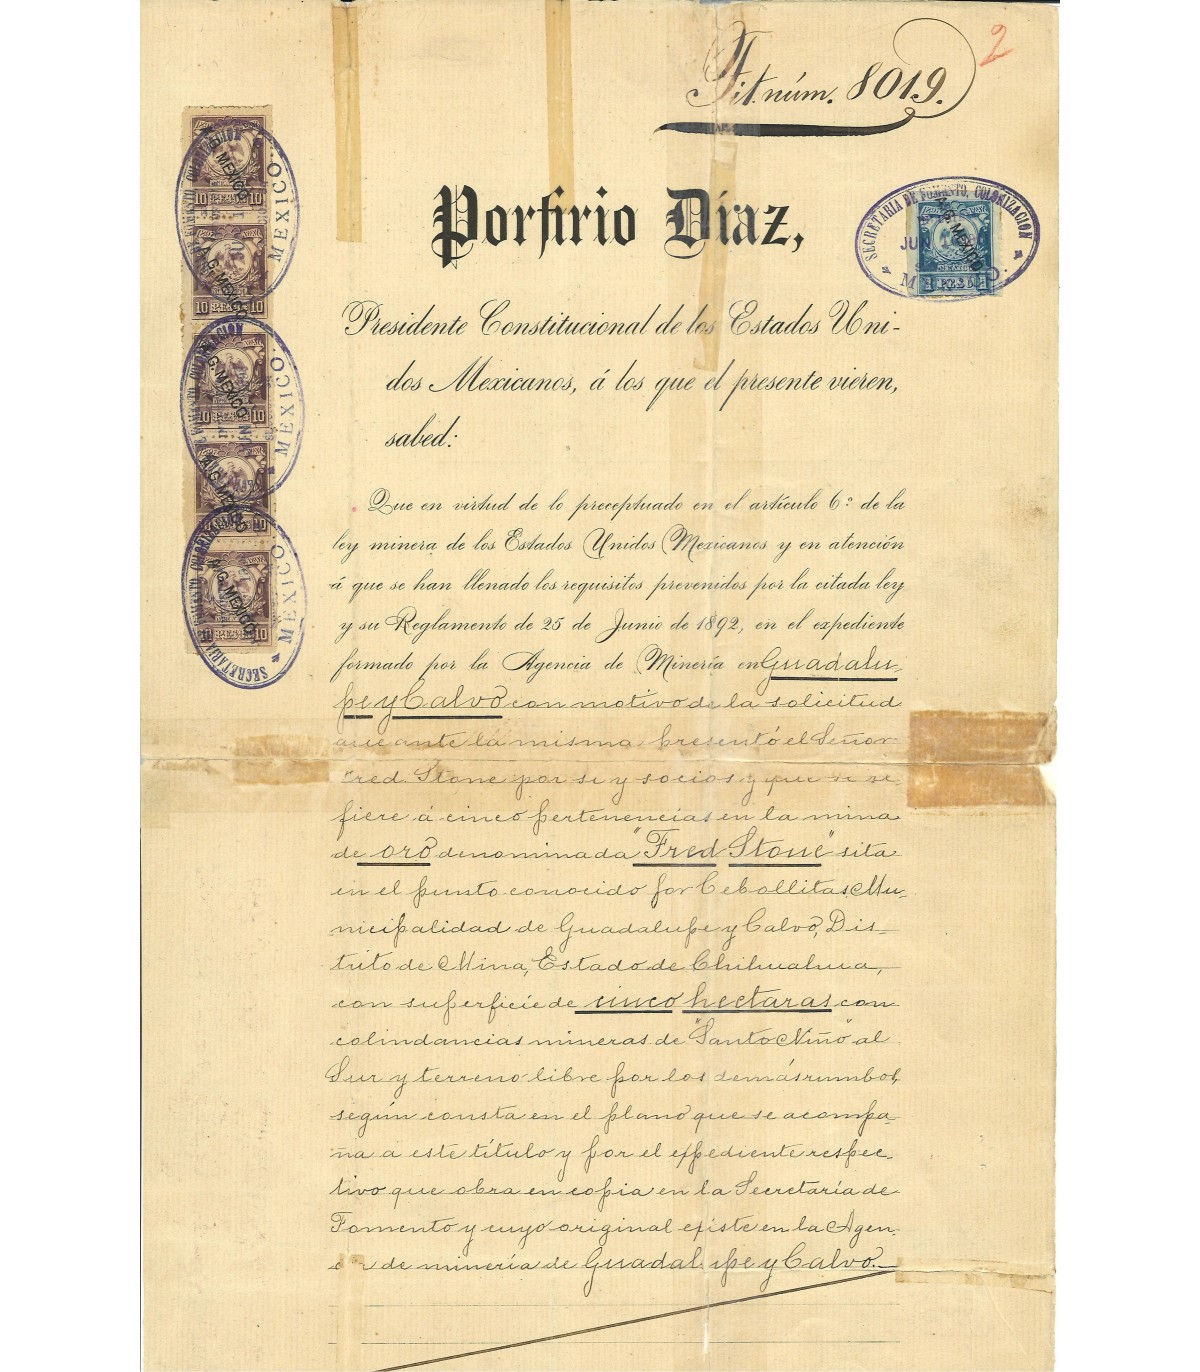 2
Tit. núm. 8019.
Porfirio Díaz,
SECRETARIA DE FOMENTO, COLONIZACION
MEXICO.
JUN
A.G. MEXICO
1 PESO 1
MEXICO..
A.G. MEXICO
10 PESOS 10
10 PESOS 10
A.G. MEXICO
MEXICO..
10 PESOS 10
A.G. MEXICO
10 PESOS 10
A.G. MEXICO
MEXICO..
10 PESOS 10
SECRETARIA DE FOMENTO, COLONIZACION
Presidente Constitucional de los Estados Uni-
dos Mexicanos, á los que el presente vieren,
sabed:
Que en virtud de lo preceptuado en el artículo 6º de la
ley minera de los Estados Unidos Mexicanos y en atención
á que se han llenado los requisitos prevenidos por la citada ley
y su Reglamento de 25 de Junio de 1892, en el expediente
formado por la Agencia de Minería en Guadalu-
pe y Calvo con motivo de la solicitud
que ante la misma presentó el Señor
Fred Stone por si y socios y que se re-
fiere á cinco pertenencias en la mina
de oro denominada "Fred Stone" sita
en el punto conocido por Cebollitas, Mu-
nicipalidad de Guadalupe y Calvo, Dis-
trito de Mina, Estado de Chihuahua,
con superficie de cinco hectaras con
colindancias mineras de "Santo Niño" al
Sur y terreno libre por los demás rumbos,
según consta en el plano que se acompa-
ña a este título y por el expediente respec-
tivo que obra en copia en la Secretaría de
Fomento y cuyo original existe en la Agen-
de minería de Guadalupe y Calvo.